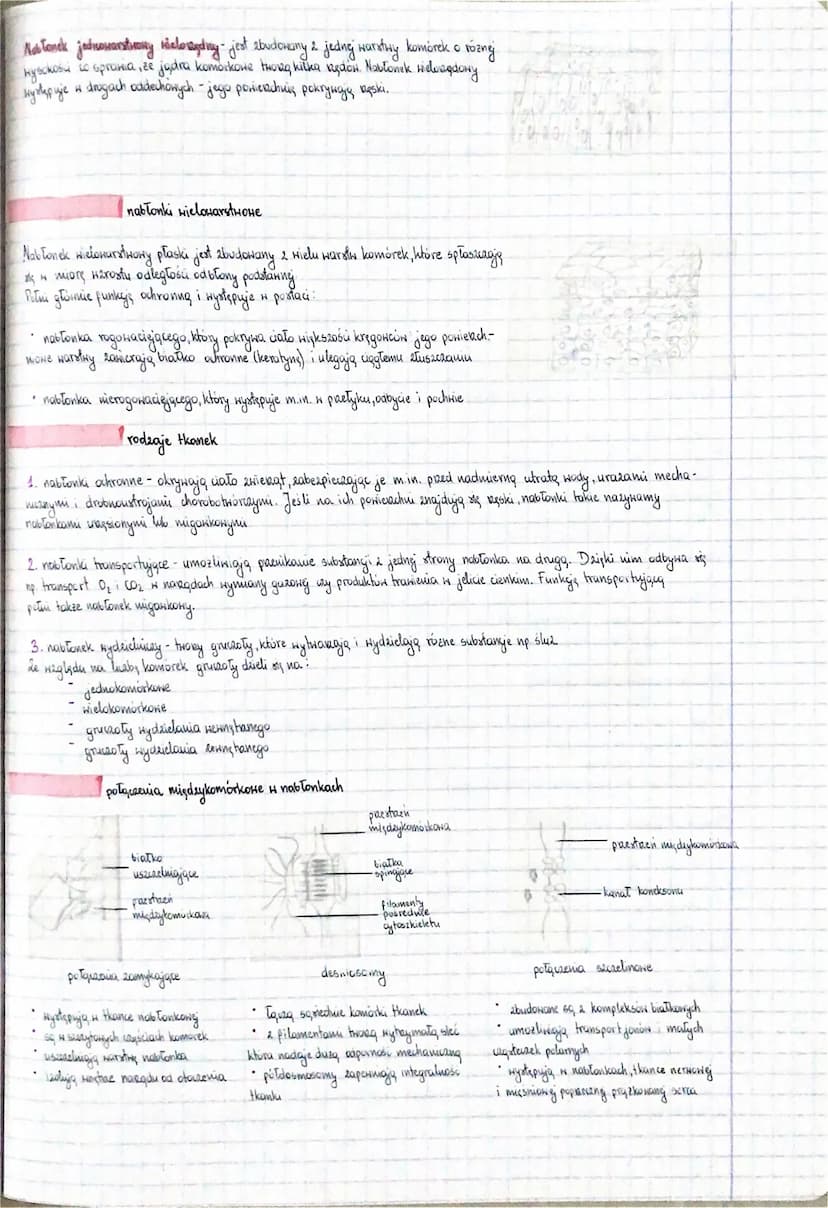 Nabłonek jednowarstwowy wielorzędowy - jest zbudowany z jednej warstwy komórek o różnej
wysokości co sprawia, że jądra komórkowe tworzą kilka rzędów. Nabłonek wielorzędowy
występuje w drogach oddechowych - jego powierzchnię pokrywają rzęski.
nabłonki wielowarstwowe
Nabłonek wielowarstwowy płaski jest zbudowany z wielu warstw komórek, które spłaszczają
się w miarę wzrostu odległości od błony podstawnej
Pełni głównie funkcję ochronną i występuje w postaci:
· nabłonka rogowaciejącego, który pokrywa ciało większości kręgowców jego powierzch-
niowe warstwy zawierają białko ochronne (keratynę) i ulegają ciągłemu złuszczaniu
· nabłonka nierogowaciejącego, który występuje m.in. w przełyku, odbycie i pochwie
rodzaje tkanek
1. nabłonki ochronne - okrywają ciało zwierząt, zabezpieczając je m.in. przed nadmierną utratą wody, urazami mecha-
nicznymi i drobnoustrojami chorobotwórczymi. Jeśli na ich powierzchni znajdują się rzęski, nabłonki takie nazywamy
nabłonkami urzęsionymi lub migawkowymi
2. nabłonki transportujące - umożliwiają przenikanie substancji z jednej strony nabłonka na drugą. Dzięki nim odbywa się
np. transport O₂ i CO₂ w narządach wymiany gazowej czy produktów trawienia w jelicie cienkim. Funkcję transportującą
pełni także nabłonek migawkowy.
3. nabłonek wydzielniczy - tworzy gruczoły, które wytwarzają i wydzielają różne substancje np. śluz
Ze względu na liczbę komórek gruczoły dzieli się na:
- jednokomórkowe
- wielokomórkowe
- gruczoły wydzielania wewnętrznego
- gruczoły wydzielania zewnętrznego
połączenia międzykomórkowe w nabłonkach
białko
uszczelniające
przestrzeń
międzykomórkowa
przestrzeń
międzykomórkowa
białka
spinające
filamenty
pośrednie
cytoszkieletu
przestrzeń międzykomórkowa
kanał koneksonu
połączenia zamykające
· występują w tkance nabłonkowej
· są w szczytowych częściach komórek
· uszczelniają warstwę nabłonka
· izolują wnętrze narządu od otoczenia
desmosomy
· łączą sąsiednie komórki tkanek
· z filamentami tworzą wytrzymałą sieć
która nadaje dużą odporność mechaniczną
· półdesmosomy zapewniają integralność
tkanki
połączenia szczelinowe
· zbudowane są z kompleksów białkowych
· umożliwiają transport jonów i małych
cząsteczek polarnych
· występują w nabłonkach, tkance nerwowej
i mięśniowej poprzecznej prążkowanej serca